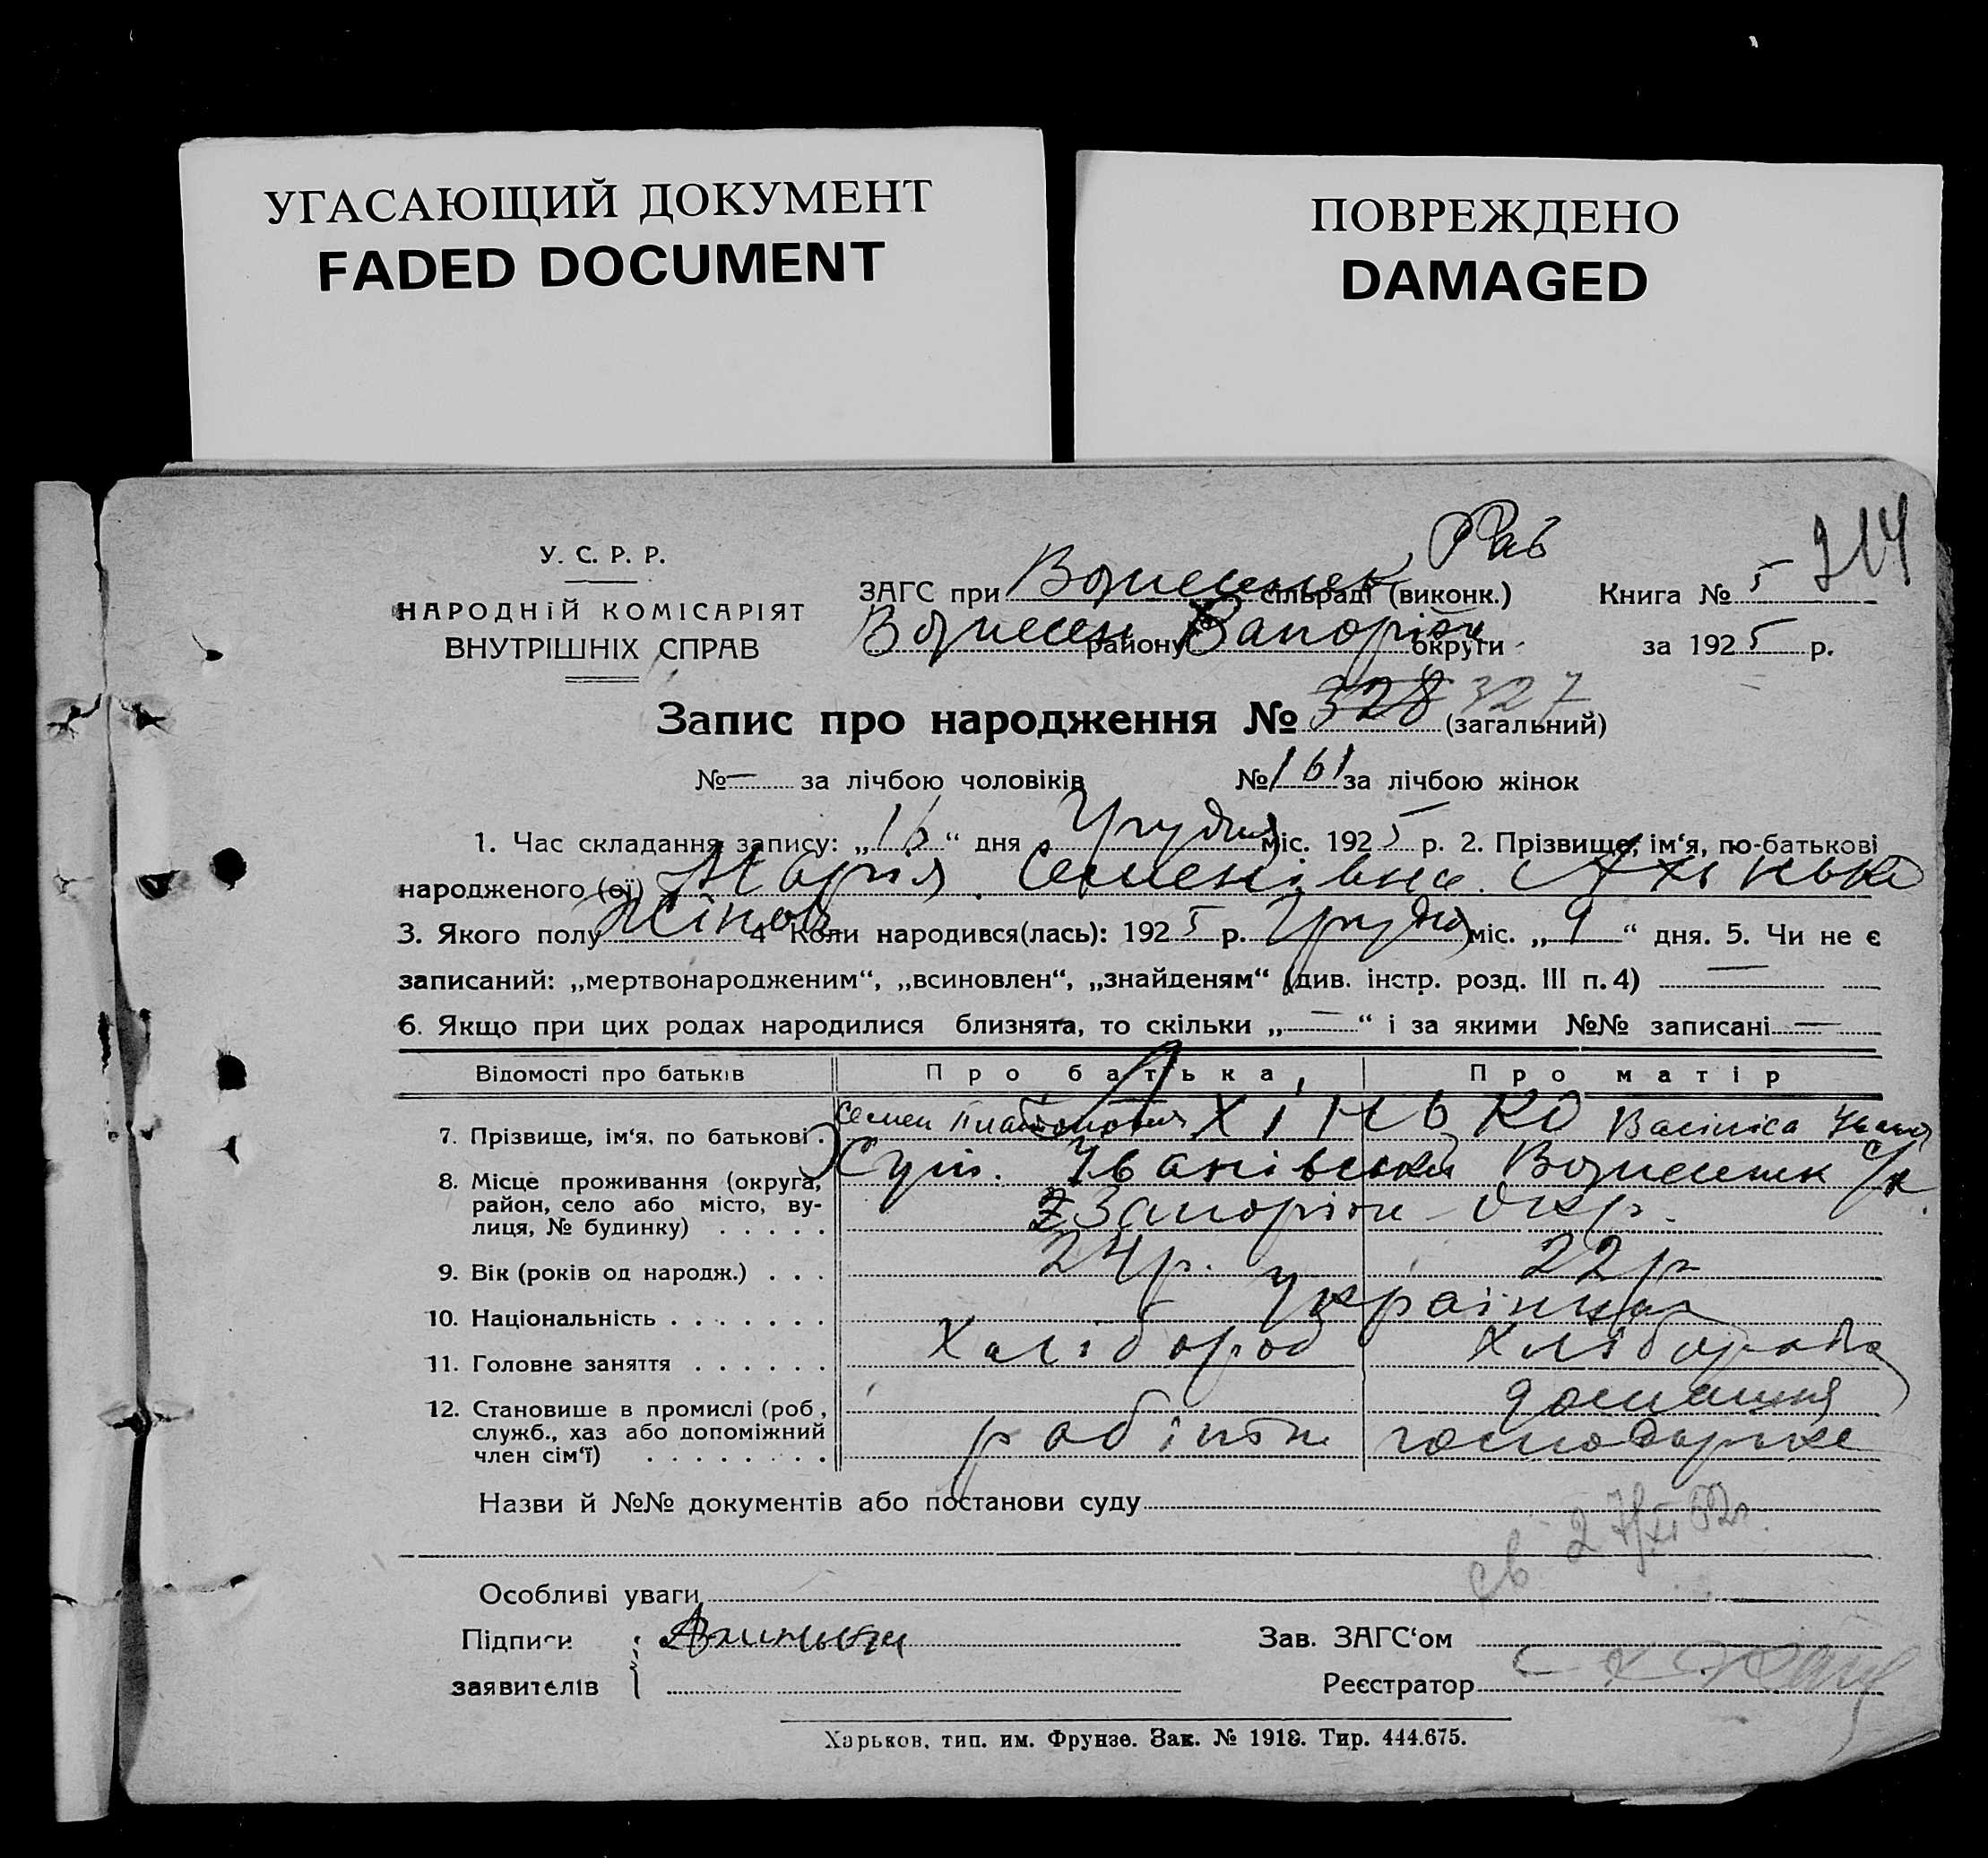 УГАСАЮЩИЙ ДОКУМЕНТ
FADED DOCUMENT
ПОВРЕЖДЕНО
DAMAGED
214
У. С. Р. Р.
НАРОДНІЙ КОМІСАРІЯТ
ВНУТРІШНІХ СПРАВ
ЗАГС при Вознесенск сільраді (виконк.)
Вознесен району Запоріж округи
Книга № 5
за 1925 р.
Запис про народження № 328 327 (загальний)
№ — за лічбою чоловіків № 161 за лічбою жінок
1. Час складання запису: „16“ дня Грудня міс. 1925 р. 2. Прізвище, ім‘я, по-батькові
народженого (ої) Марія Семенівна Ахінько
3. Якого полу Жіноч 4 Коли народився(лась): 1925 р. Грудня міс. „9“ дня. 5. Чи не є
записаний: „мертвонародженим“, „всиновлен“, „знайденям“ (див. інстр. розд. III п. 4) —
6. Якщо при цих родах народилися близнята, то скільки „—“ і за якими №№ записані —
Відомості про батьків Про батька, Про матір
7. Прізвище, ім‘я, по батькові . Семен Платонович АХІНЬКО Васіліса
8. Місце проживання (округа, Івановськ Вознесенск
район, село або місто, ву- Запоріж окр.
лиця, № будинку) . . . . .
9. Вік (років од народж.) . . . 24 р. 22 р
10. Національність . . . . . . . українци
11. Головне заняття . . . . . . Хлібороб Хліборобка
12. Становише в промислі (роб, домашня
служб., хаз або допоміжний робітн господарка
член сім‘ї) . . . . . . . .
Назви й №№ документів або постанови суду
св 27/XI 52г.
Особливі уваги
Підписи : Ахинько Зав. ЗАГС‘ом
заявителів Реєстратор
Харьков, тип. им. Фрунзе. Зак. № 1918. Тир. 444.675.